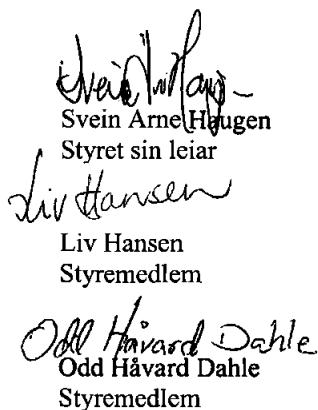 Svein Arne Haugen
Styret sin leiar
Liv Hansen
Liv Hansen
Styremedlem
Odd Håvard Dahle
Odd Håvard Dahle
Styremedlem